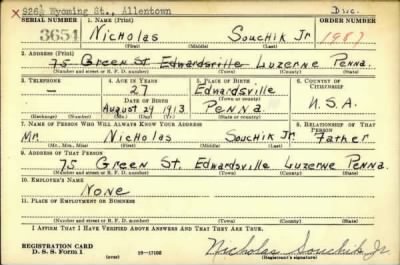 x 926½ Wyoming St., Allentown Divc.
SERIAL NUMBER 1. NAME (Print)
3651 Nicholas Souchik Jr 1987
(First) (Middle) (Last)
2. ADDRESS (Print)
75 Green St Edwardsville Luzerne Penna.
(Number and street or R. F. D. number) (Town) (County) (State)
3. TELEPHONE 4. AGE IN YEARS 5. PLACE OF BIRTH 6. COUNTRY OF CITIZENSHIP
– 27 Edwardsville
DATE OF BIRTH (Town or county)
August 24 1913 Penna U.S.A.
(Exchange) (Number) (Mo.) (Day) (Yr.) (State or country)
7. NAME OF PERSON WHO WILL ALWAYS KNOW YOUR ADDRESS 8. RELATIONSHIP OF THAT PERSON
Mr. Nicholas Souchik Jr. Father
(Mr., Mrs., Miss) (First) (Middle) (Last)
9. ADDRESS OF THAT PERSON
75 Green St. Edwardsville Luzerne Penna.
(Number and street or R. F. D. number) (Town) (County) (State)
10. EMPLOYER'S NAME
None
11. PLACE OF EMPLOYMENT OR BUSINESS
(Number and street or R. F. D. number) (Town) (County) (State)
I AFFIRM THAT I HAVE VERIFIED ABOVE ANSWERS AND THAT THEY ARE TRUE.
REGISTRATION CARD
D. S. S. Form 1 (over) 16—17105 Nicholas Souchik Jr
(Registrant's signature)